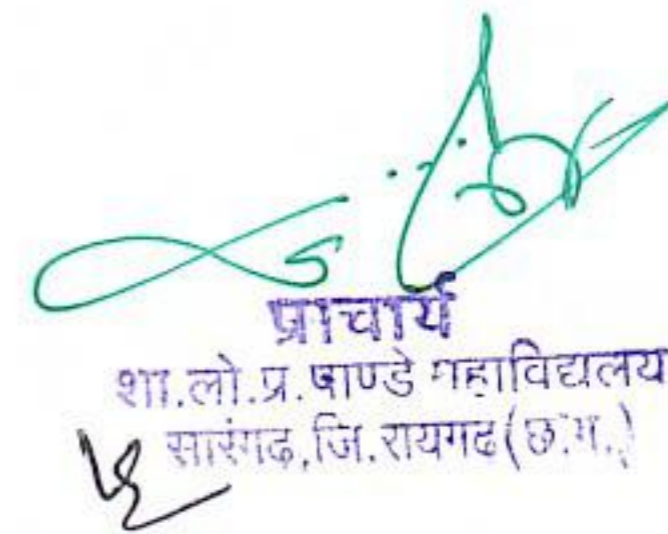 प्राचार्य
शा.लो.प्र.पाण्डे महाविद्यलय
सारंगढ,जि.रायगढ(छ.ग.)